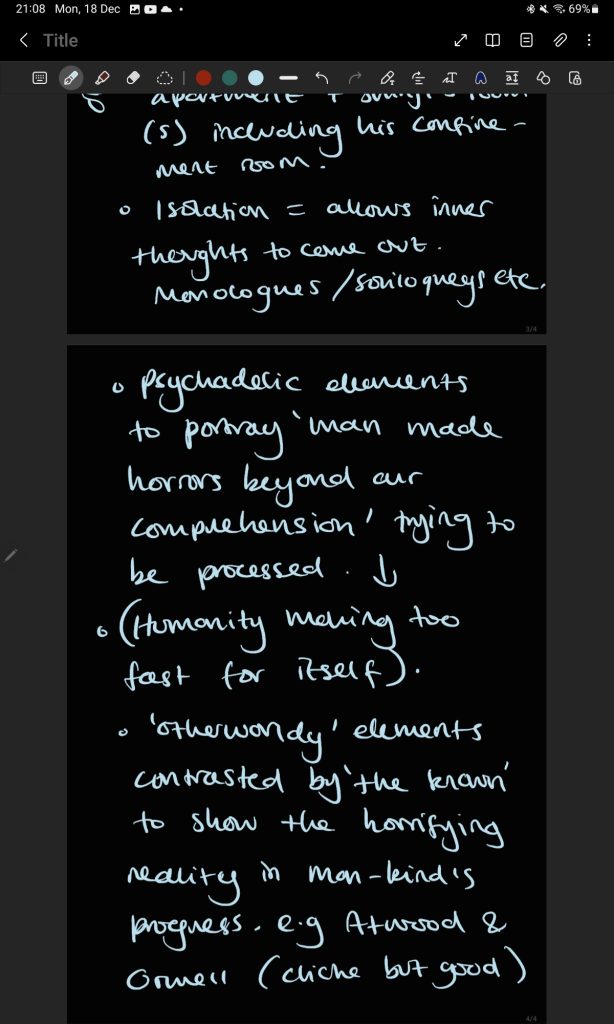 21:08 Mon, 18 Dec
69%
Title
apartment +
(s) including his confine-
ment room.
Isolation = allows inner
thoughts to come out.
Monologues / soniloqueys etc.
3/4
Psychadelic elements
to portray 'man made
horrors beyond our
comprehension' trying to
be processed. ↓
(Humanity moving too
fast for itself).
'otherworldy' elements
contrasted by 'the known'
to show the horrifying
reality in man-kind's
progress. e.g Atwood &
Orwell (cliche but good)
4/4